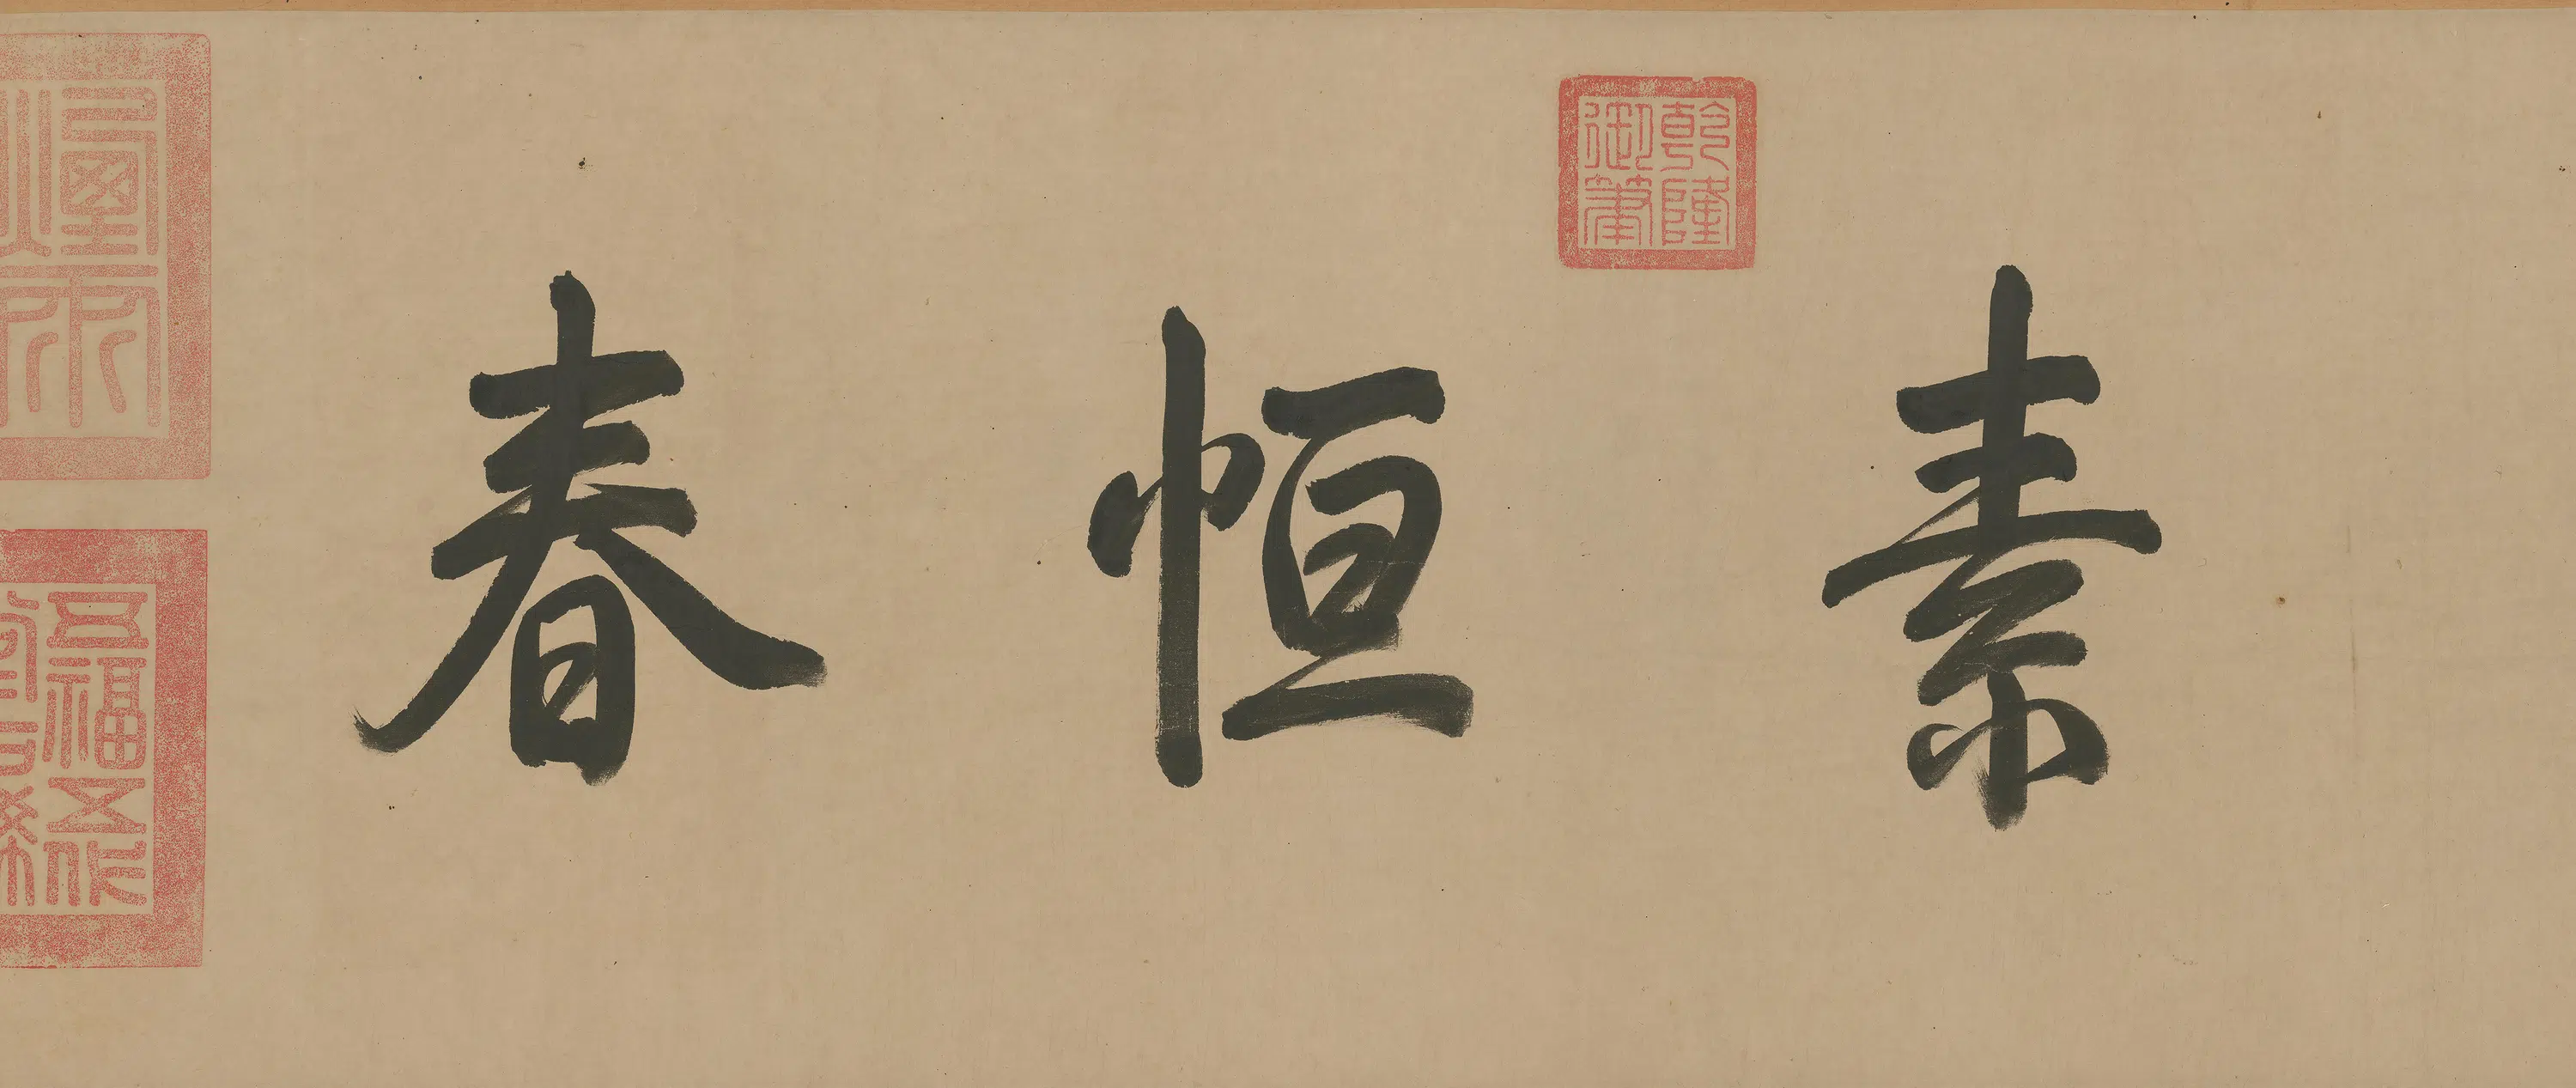 素恒春
乾隆
御筆
五福五代